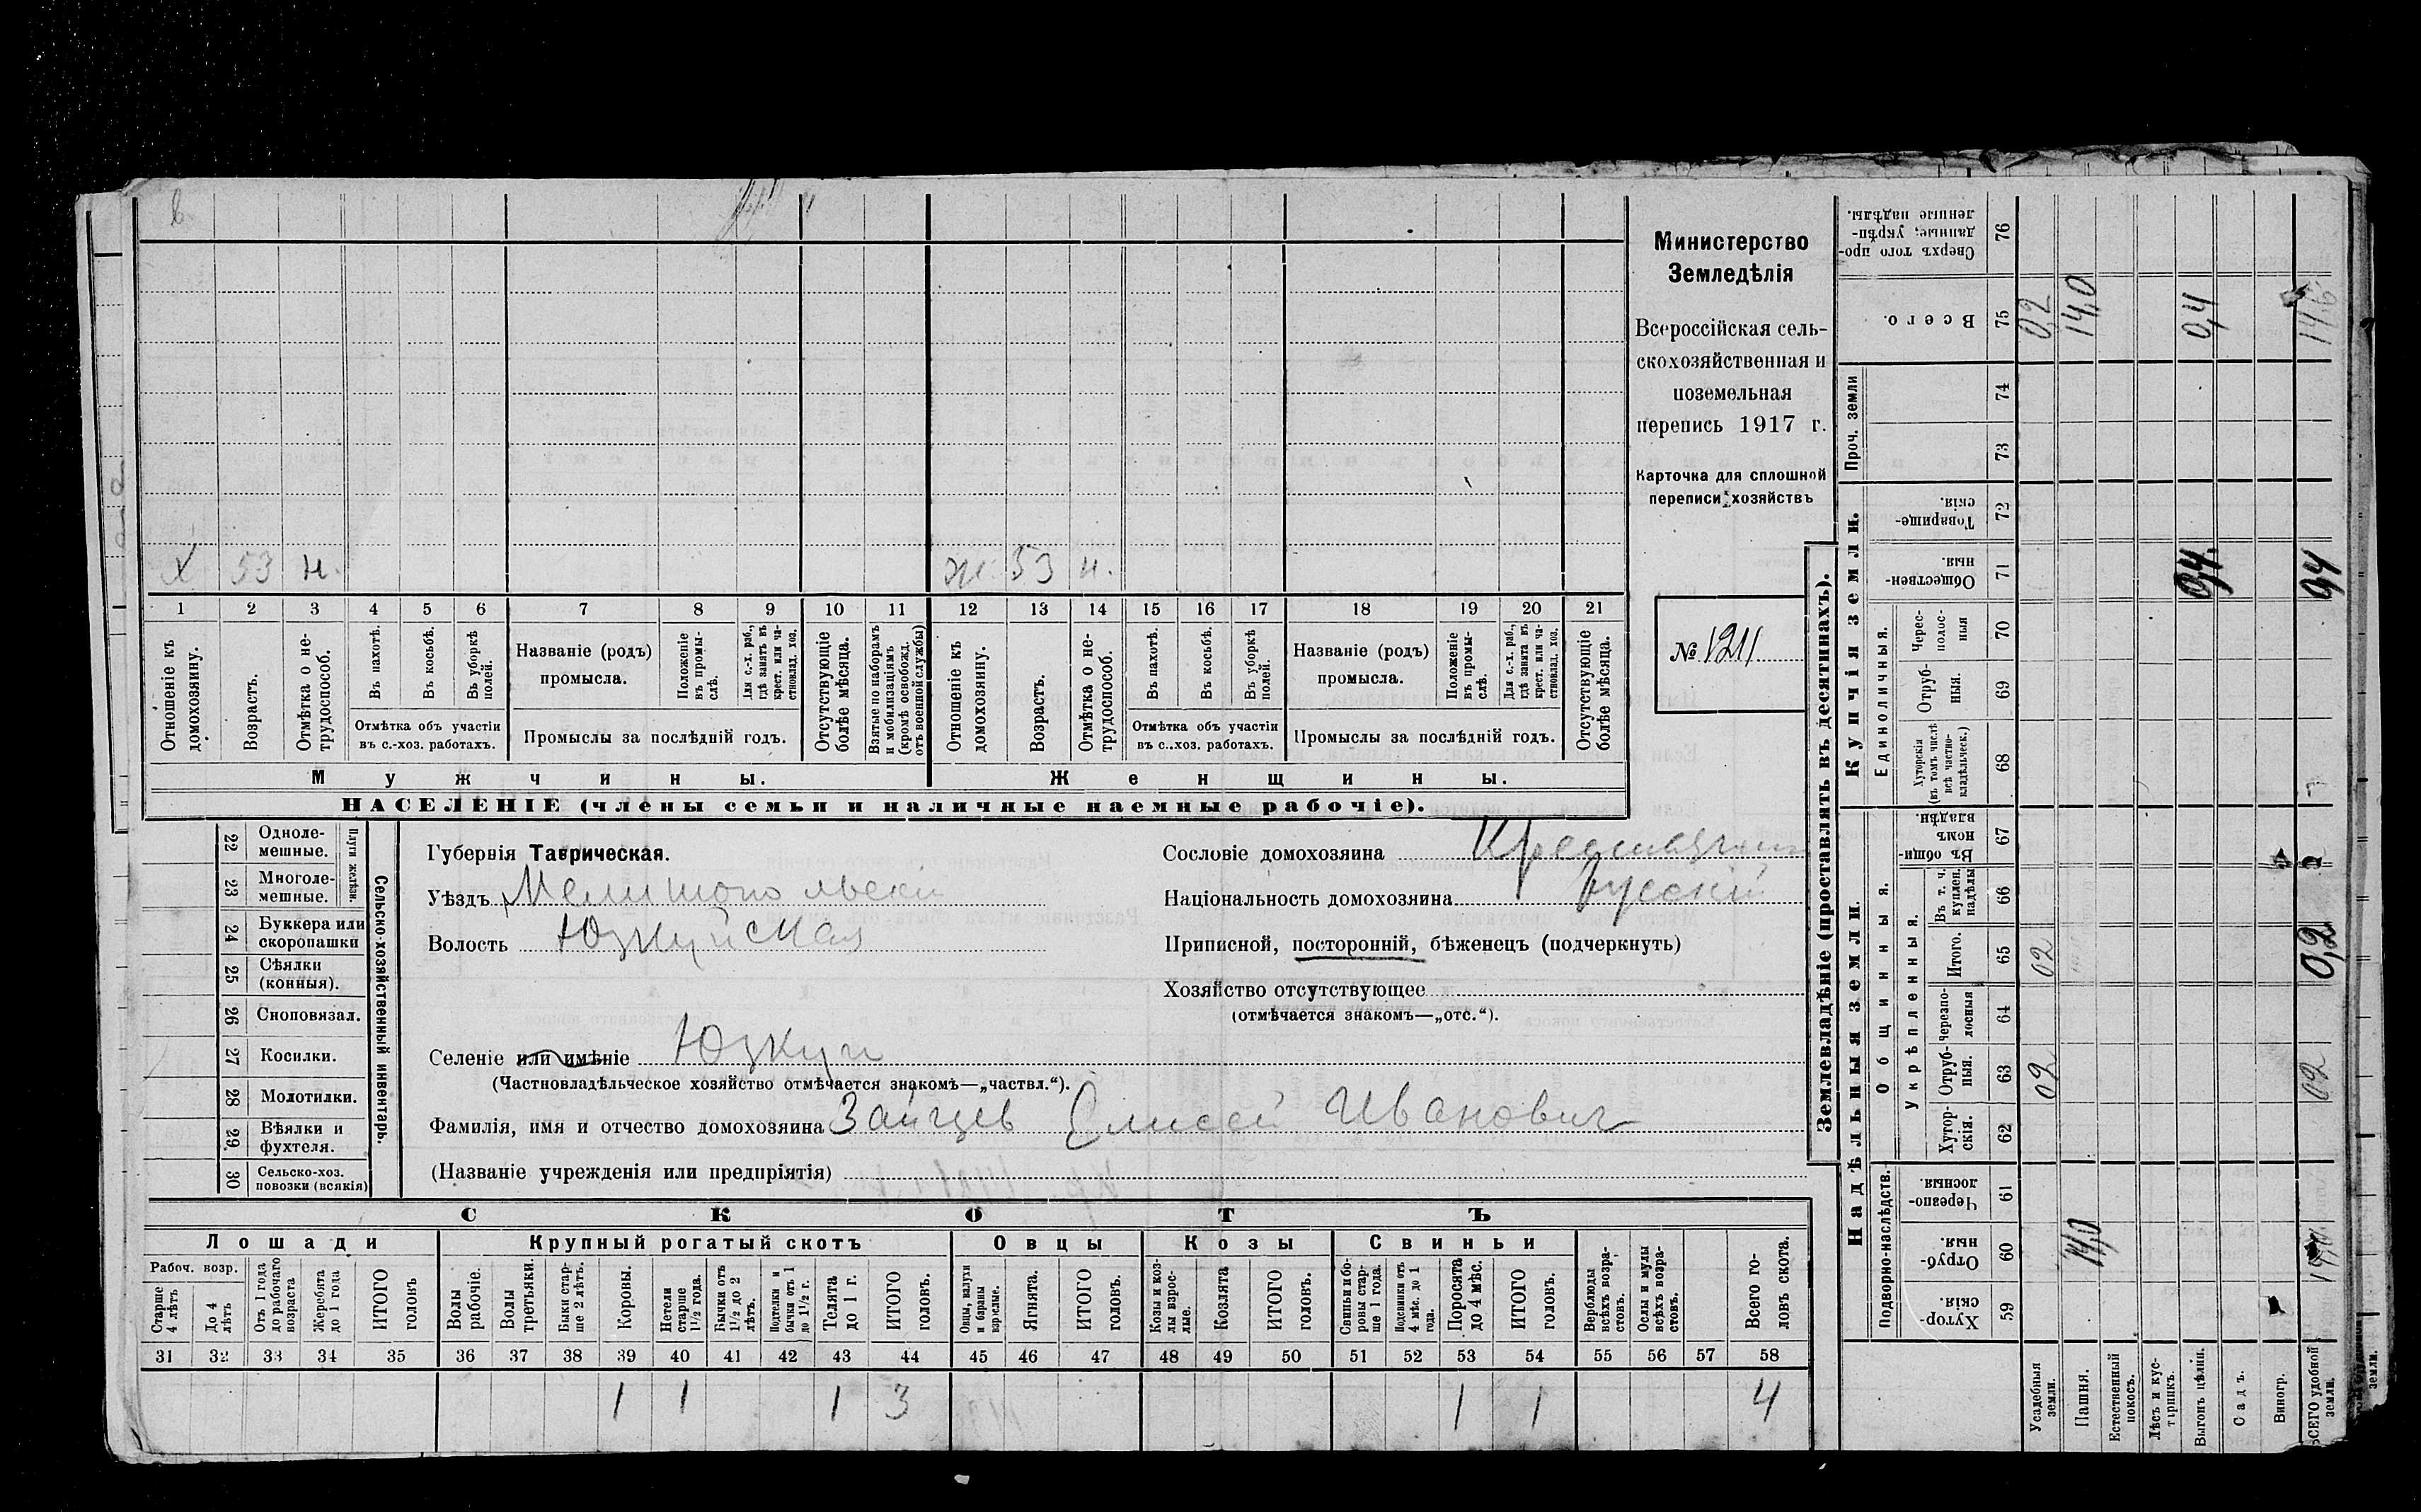 Х 53 н. ж. 53 н.
1 2 3 4 5 6 7 8 9 10 11 12 13 14 15 16 17 18 19 20 21
Отношеніе къ домохозяину.
Возрастъ.
Отмѣтка о нетрудоспособ.
Въ пахотѣ.
Въ косьбѣ.
Въ уборкѣ полей.
Отмѣтка объ участіи
въ с.-хоз. работахъ.
Названіе (родъ)
промысла.
Положеніе въ промыслѣ.
Для с.-х. раб., гдѣ занятъ въ крест. или частновлад. хоз.
Промыслы за послѣдній годъ.
Отсутствующіе болѣе мѣсяца.
Взятые по наборамъ и мобилизаціямъ (кромѣ освобожд. отъ военной службы)
Отношеніе къ домохозяину.
Возрастъ.
Отмѣтка о нетрудоспособ.
Въ пахотѣ.
Въ косьбѣ.
Въ уборкѣ полей.
Отмѣтка объ участіи
въ с..хоз. работахъ.
Названіе (родъ)
промысла.
Положеніе въ промыслѣ.
Для с.-х. раб., гдѣ занята въ крест. или частновлад. хоз.
Промыслы за послѣдній годъ.
Отсутствующіе болѣе мѣсяца.
Мужчины. Женщины.
НАСЕЛЕНІЕ (члены семьи и наличные наемные рабочіе).
Министерство
Земледѣлія
Всероссійская сель-
скохозяйственная и
поземельная
перепись 1917 г.
Карточка для сплошной
переписи хозяйствъ
№ 1211
22 Одноле-
мешные.
23 Многоле-
мешные.
Плуги желѣзн.
24 Буккера или
скоропашки
25 Сѣялки
(конныя).
26 Сноповязал.
27 Косилки.
28 Молотилки.
29 Вѣялки и
фухтеля.
30 Сельско-хоз.
повозки (всякія)
Сельско-хозяйственный инвентарь.
Губернія Таврическая.
Уѣздъ Мелитопольскій
Волость Юзкуйская
Селеніе или имѣніе Юзкуи
(Частновладѣльческое хозяйство отмѣчается знакомъ—„частвл.“).
Фамилія, имя и отчество домохозяина Зайцев Елисей Иванович
(Названіе учрежденія или предпріятія)
Сословіе домохозяина
Національность домохозяина Русскій
Приписной, посторонній, бѣженецъ (подчеркнуть)
Хозяйство отсутствующее
(отмѣчается знакомъ—„отс.“).
СКОТЪ
Лошади Крупный рогатый скотъ Овцы Козы Свиньи
Рабоч. возр.
Старше 4 лѣтъ
До 4 лѣтъ
Отъ 1 года до рабочаго возраста
Жеребята до 1 года
ИТОГО головъ
Волы рабочіе.
Волы третьяки.
Быки старше 2 лѣтъ.
Коровы.
Нетели старше 1½ года.
Бычки отъ 1½ до 2 лѣтъ.
Подтелки и бычки отъ 1 до 1½ г.
Телята до 1 г.
ИТОГО головъ.
Овцы, валухи и бараны взрослые.
Ягнята.
ИТОГО головъ.
Козы и козлы взрослые.
Козлята
ИТОГО головъ.
Свиньи и боровы старше 1 года.
Подсвинки отъ 4 мѣс. до 1 года.
Поросята до 4 мѣс.
ИТОГО головъ.
Верблюды всѣхъ возрастовъ.
Ослы и мулы всѣхъ возрастовъ.
Всего головъ скота.
31 32 33 34 35 36 37 38 39 40 41 42 43 44 45 46 47 48 49 50 51 52 53 54 55 56 57 58
1 1 1 3 1 1 4
Землевладѣніе (проставлять въ десятинахъ).
Сверхъ того проданные, укрѣпленные надѣлы. 76
Всего. 75 0,2 14,0 0,4 14,6
Купчія земли.
Проч. земли 74
73
Товарищескія. 72
Общественныя. 71 0,4 0,4
Единоличныя.
Чересполосныя 70
Отрубныя. 69
Хуторскія (въ томъ числѣ всѣ частновладѣльческ.) 68
Надѣльныя земли.
Общинныя.
Въ общинномъ владѣн. 67
Укрѣпленныя.
Въ т. ч. куплен. надѣлы 66
Итого. 65 02 0,2
Черезполосныя 64
Отрубныя. 63 02 02
Хуторскія. 62
Подворно-наслѣдств.
Черезполосныя 61
Отрубныя. 60 14,0
Хуторскія 59
Усадебныя земли.
Пашня.
Естественный покосъ.
Лѣсъ и кустарникъ.
Выгонъ цѣлин.
Садъ.
Виногр.
ВСЕГО удобной земли.
земли.